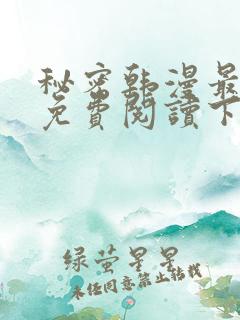 秘密韩漫最
免費閱讀下
绿萤星星
未经同意禁止转载